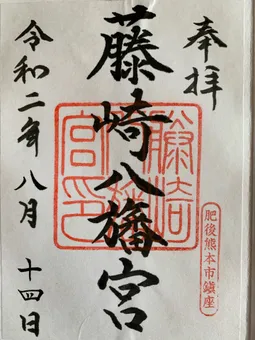 奉拝
藤崎八旛宮
藤崎宮印
肥後熊本市鎮座
令和二年八月十四日